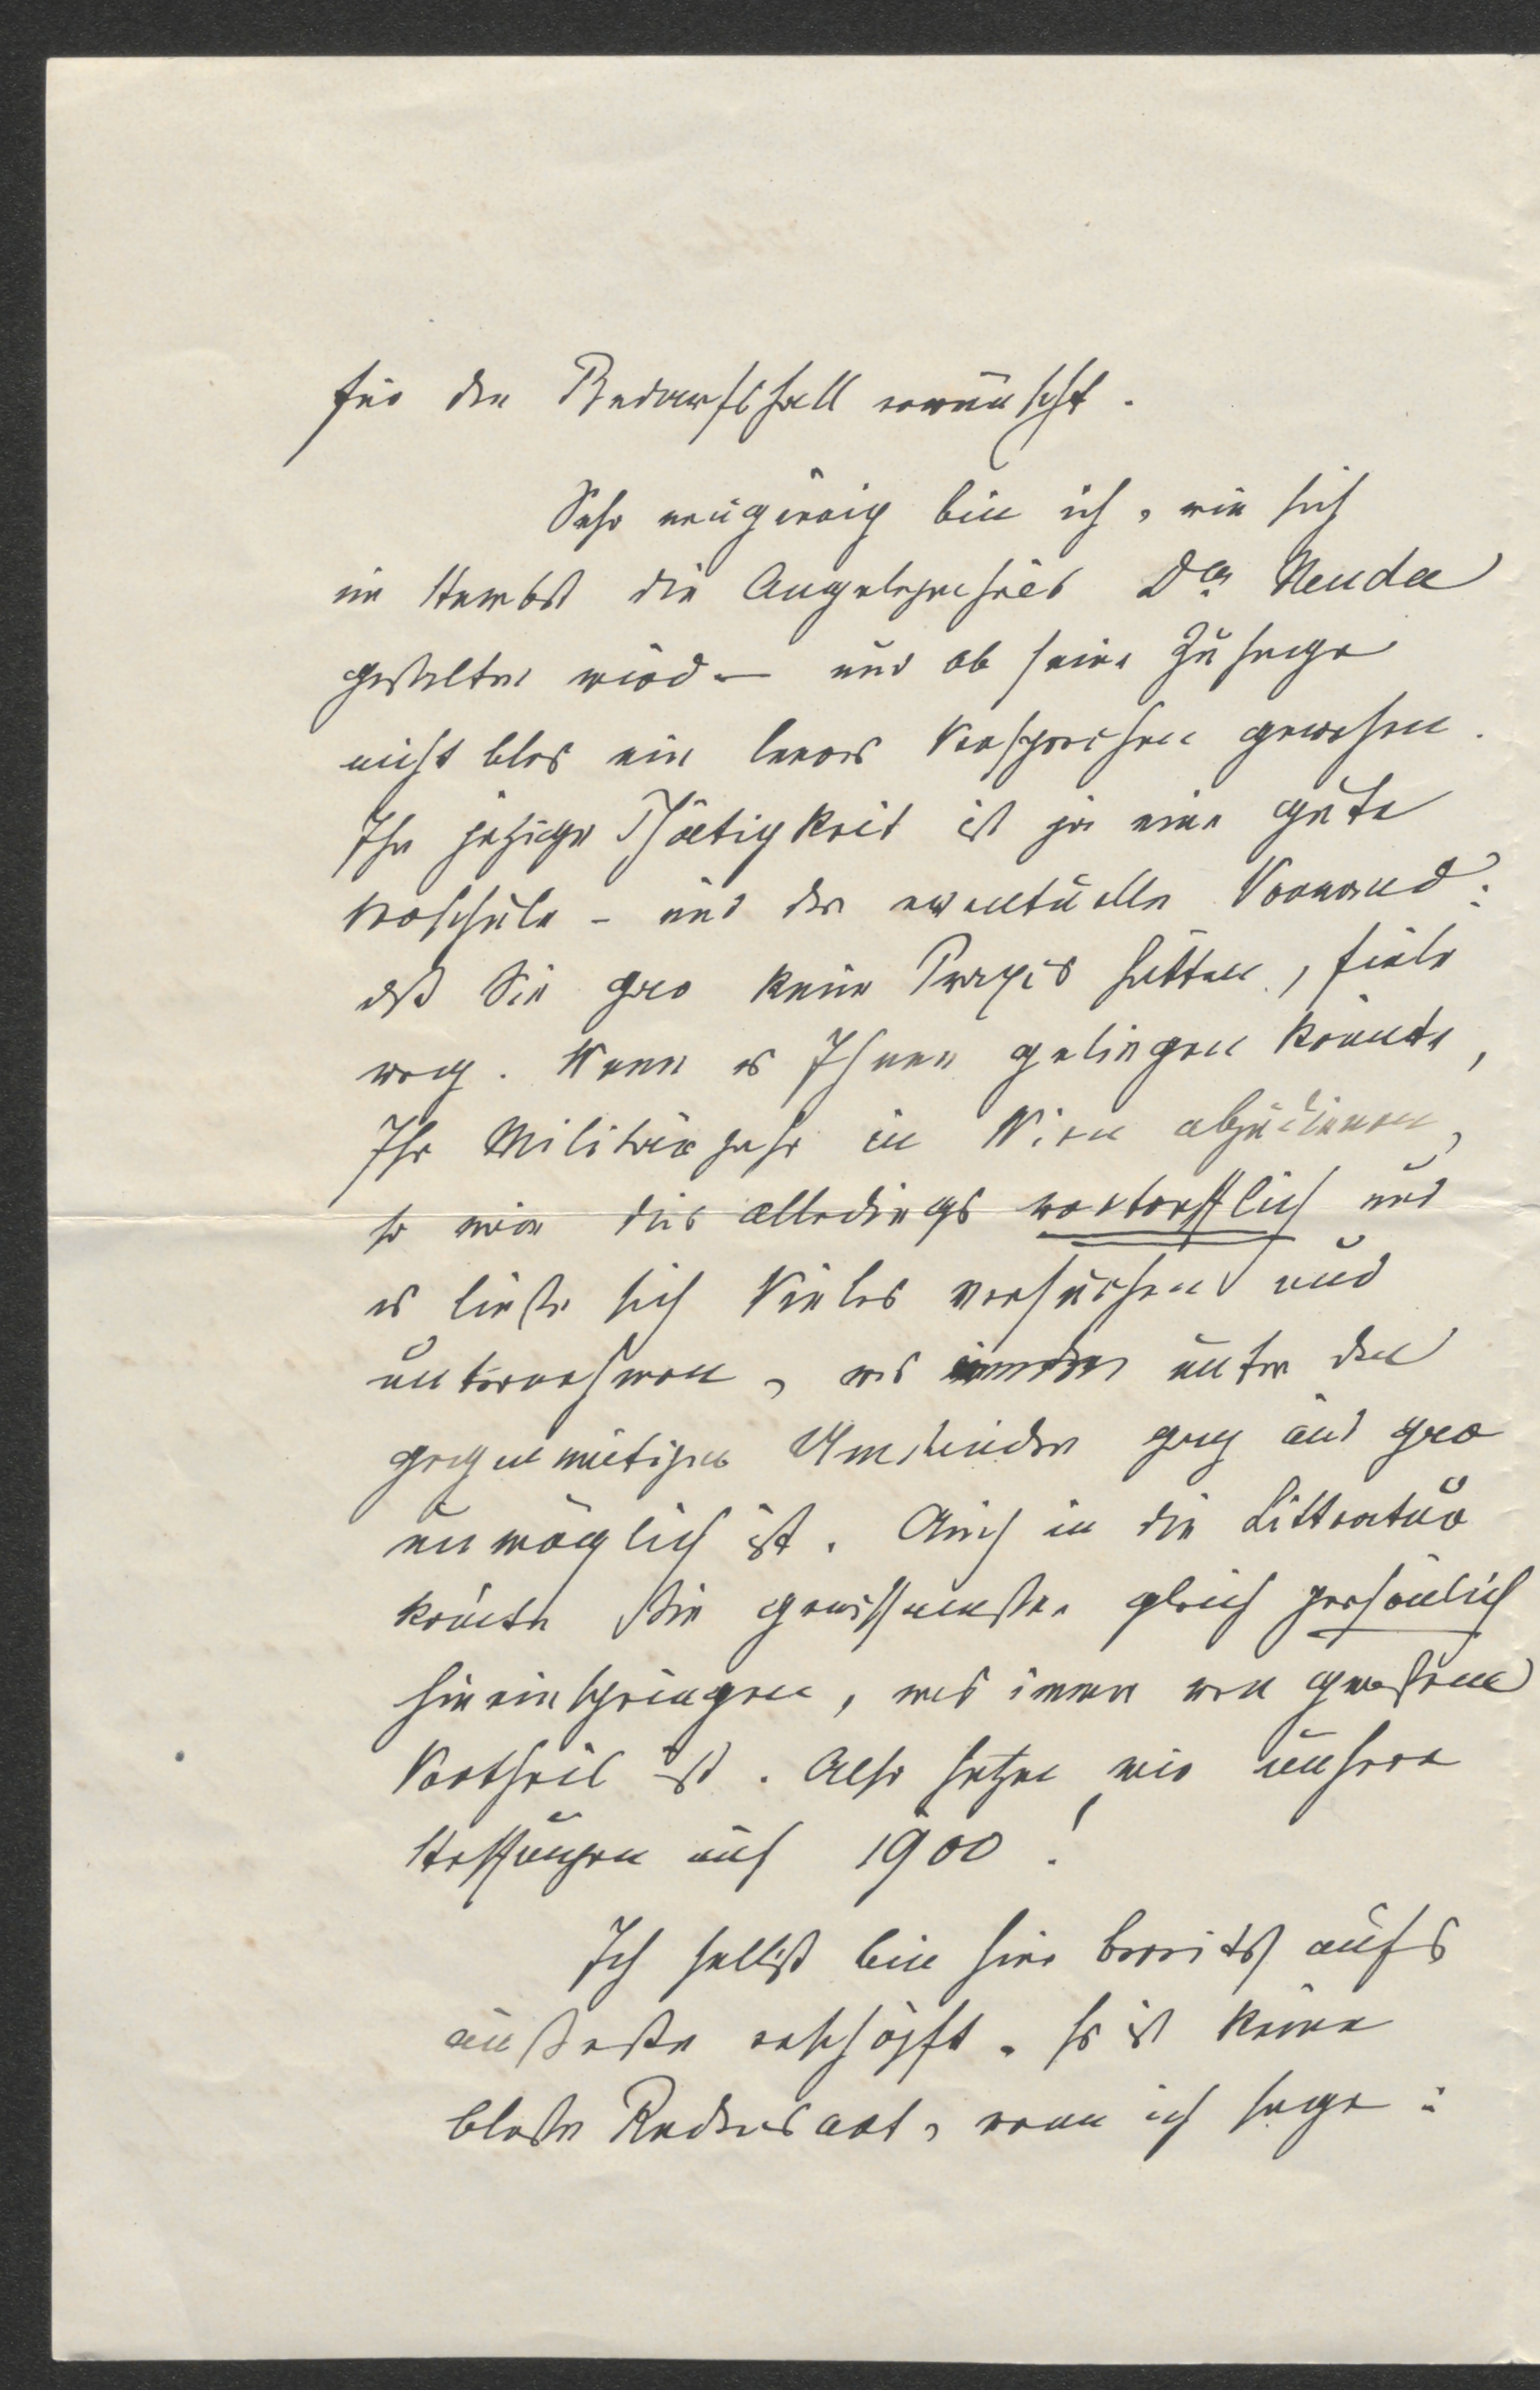 für den Bedarfsfall erwünscht.
Sehr neugierig bin ich, wie sich
im Herbst die Angelegenheit Drs Neuda
gestalten wird — und ob seine Zusage
nicht blos ein leeres Versprechen gewesen.
Ihre jetzige Thätigkeit ist ja eine gute
Vorschule – und der eventuelle Vorwand:
daß Sie gar keine Praxis hätten, fiele
weg. Wenn es Ihnen gelingen könnte,
Ihr Militärjahr in Wien abzudienen,
so wäre dies allerdings vortrefflich und
es ließe sich Vieles versuchen und
unternehmen, was unter den
gegenwärtigen Umständen ganz und gar
unmöglich ist. Auch in die Litteratur
könnten Sie gewissermaßen gleich persönlich
hineinspringen, was immer von großem
Vortheil ist. Also setzen wir unsere
Hoffnungen auf 1900!
Ich selbst bin hier bereits aufs
äußerste erschöpft. Es ist keine
bloße Redensart, wenn ich sage: